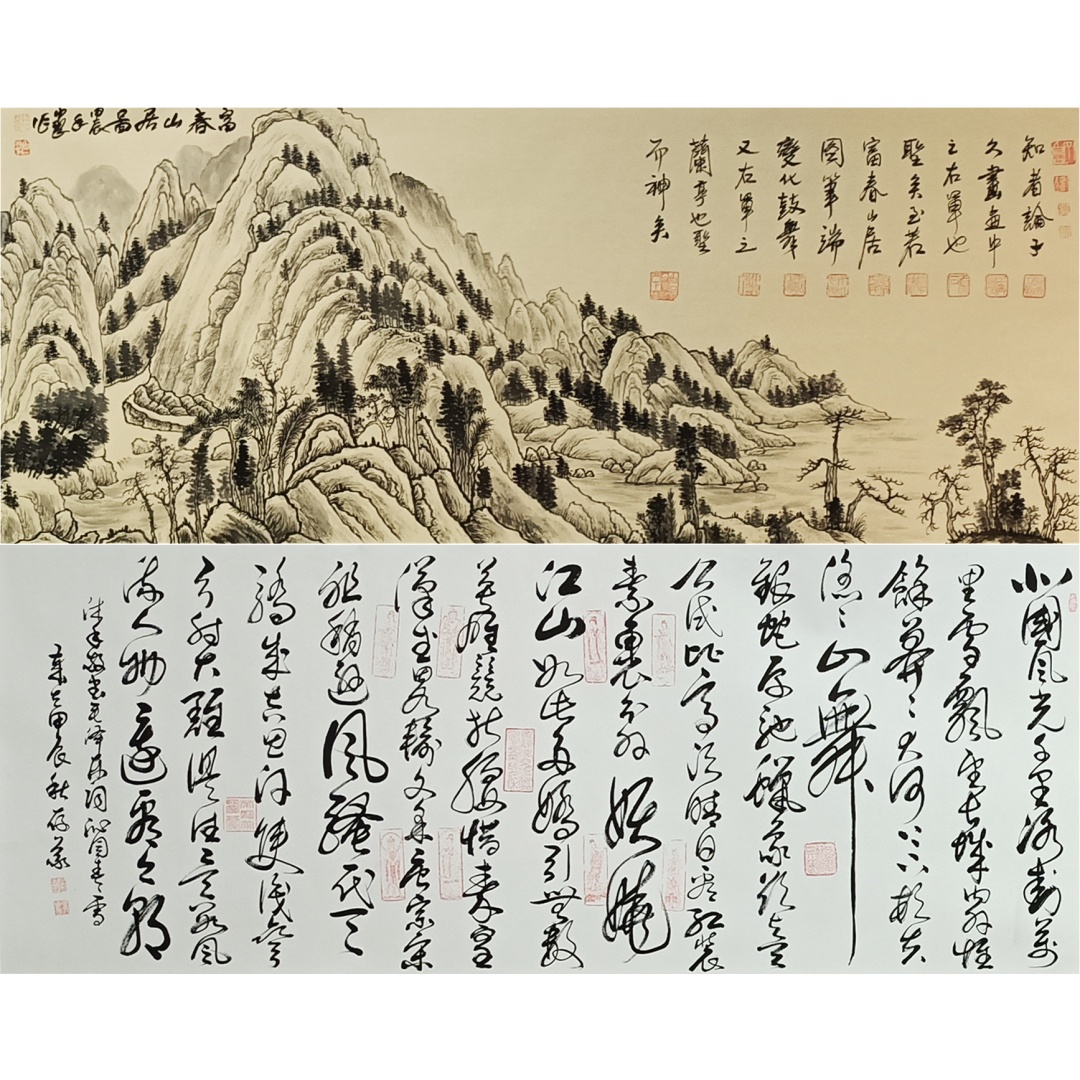 富春山居啚
知者論子
久畫畫中
之右軍也
聖矣至若
富春山居
图筆端
變化鼓舞
又右軍之
蘭亭也聖
而神矣
北國風光千里冰封萬
里雪飄望长城内外惟
餘莽〻大河上下頓失
滔〻山舞
銀蛇原馳蠟象欲與天
公試比高須晴日看紅装
素裹分外妖嬈
江山如此多嬌引無數
英雄競折腰惜秦皇
漢武略輸文采唐宗宋
祖稍遜風騷一代天
驕成吉思汗只識彎
弓射大雕俱往矣數風
流人物還看今朝
敬書毛澤東詞沁園春雪
歲在甲辰秋